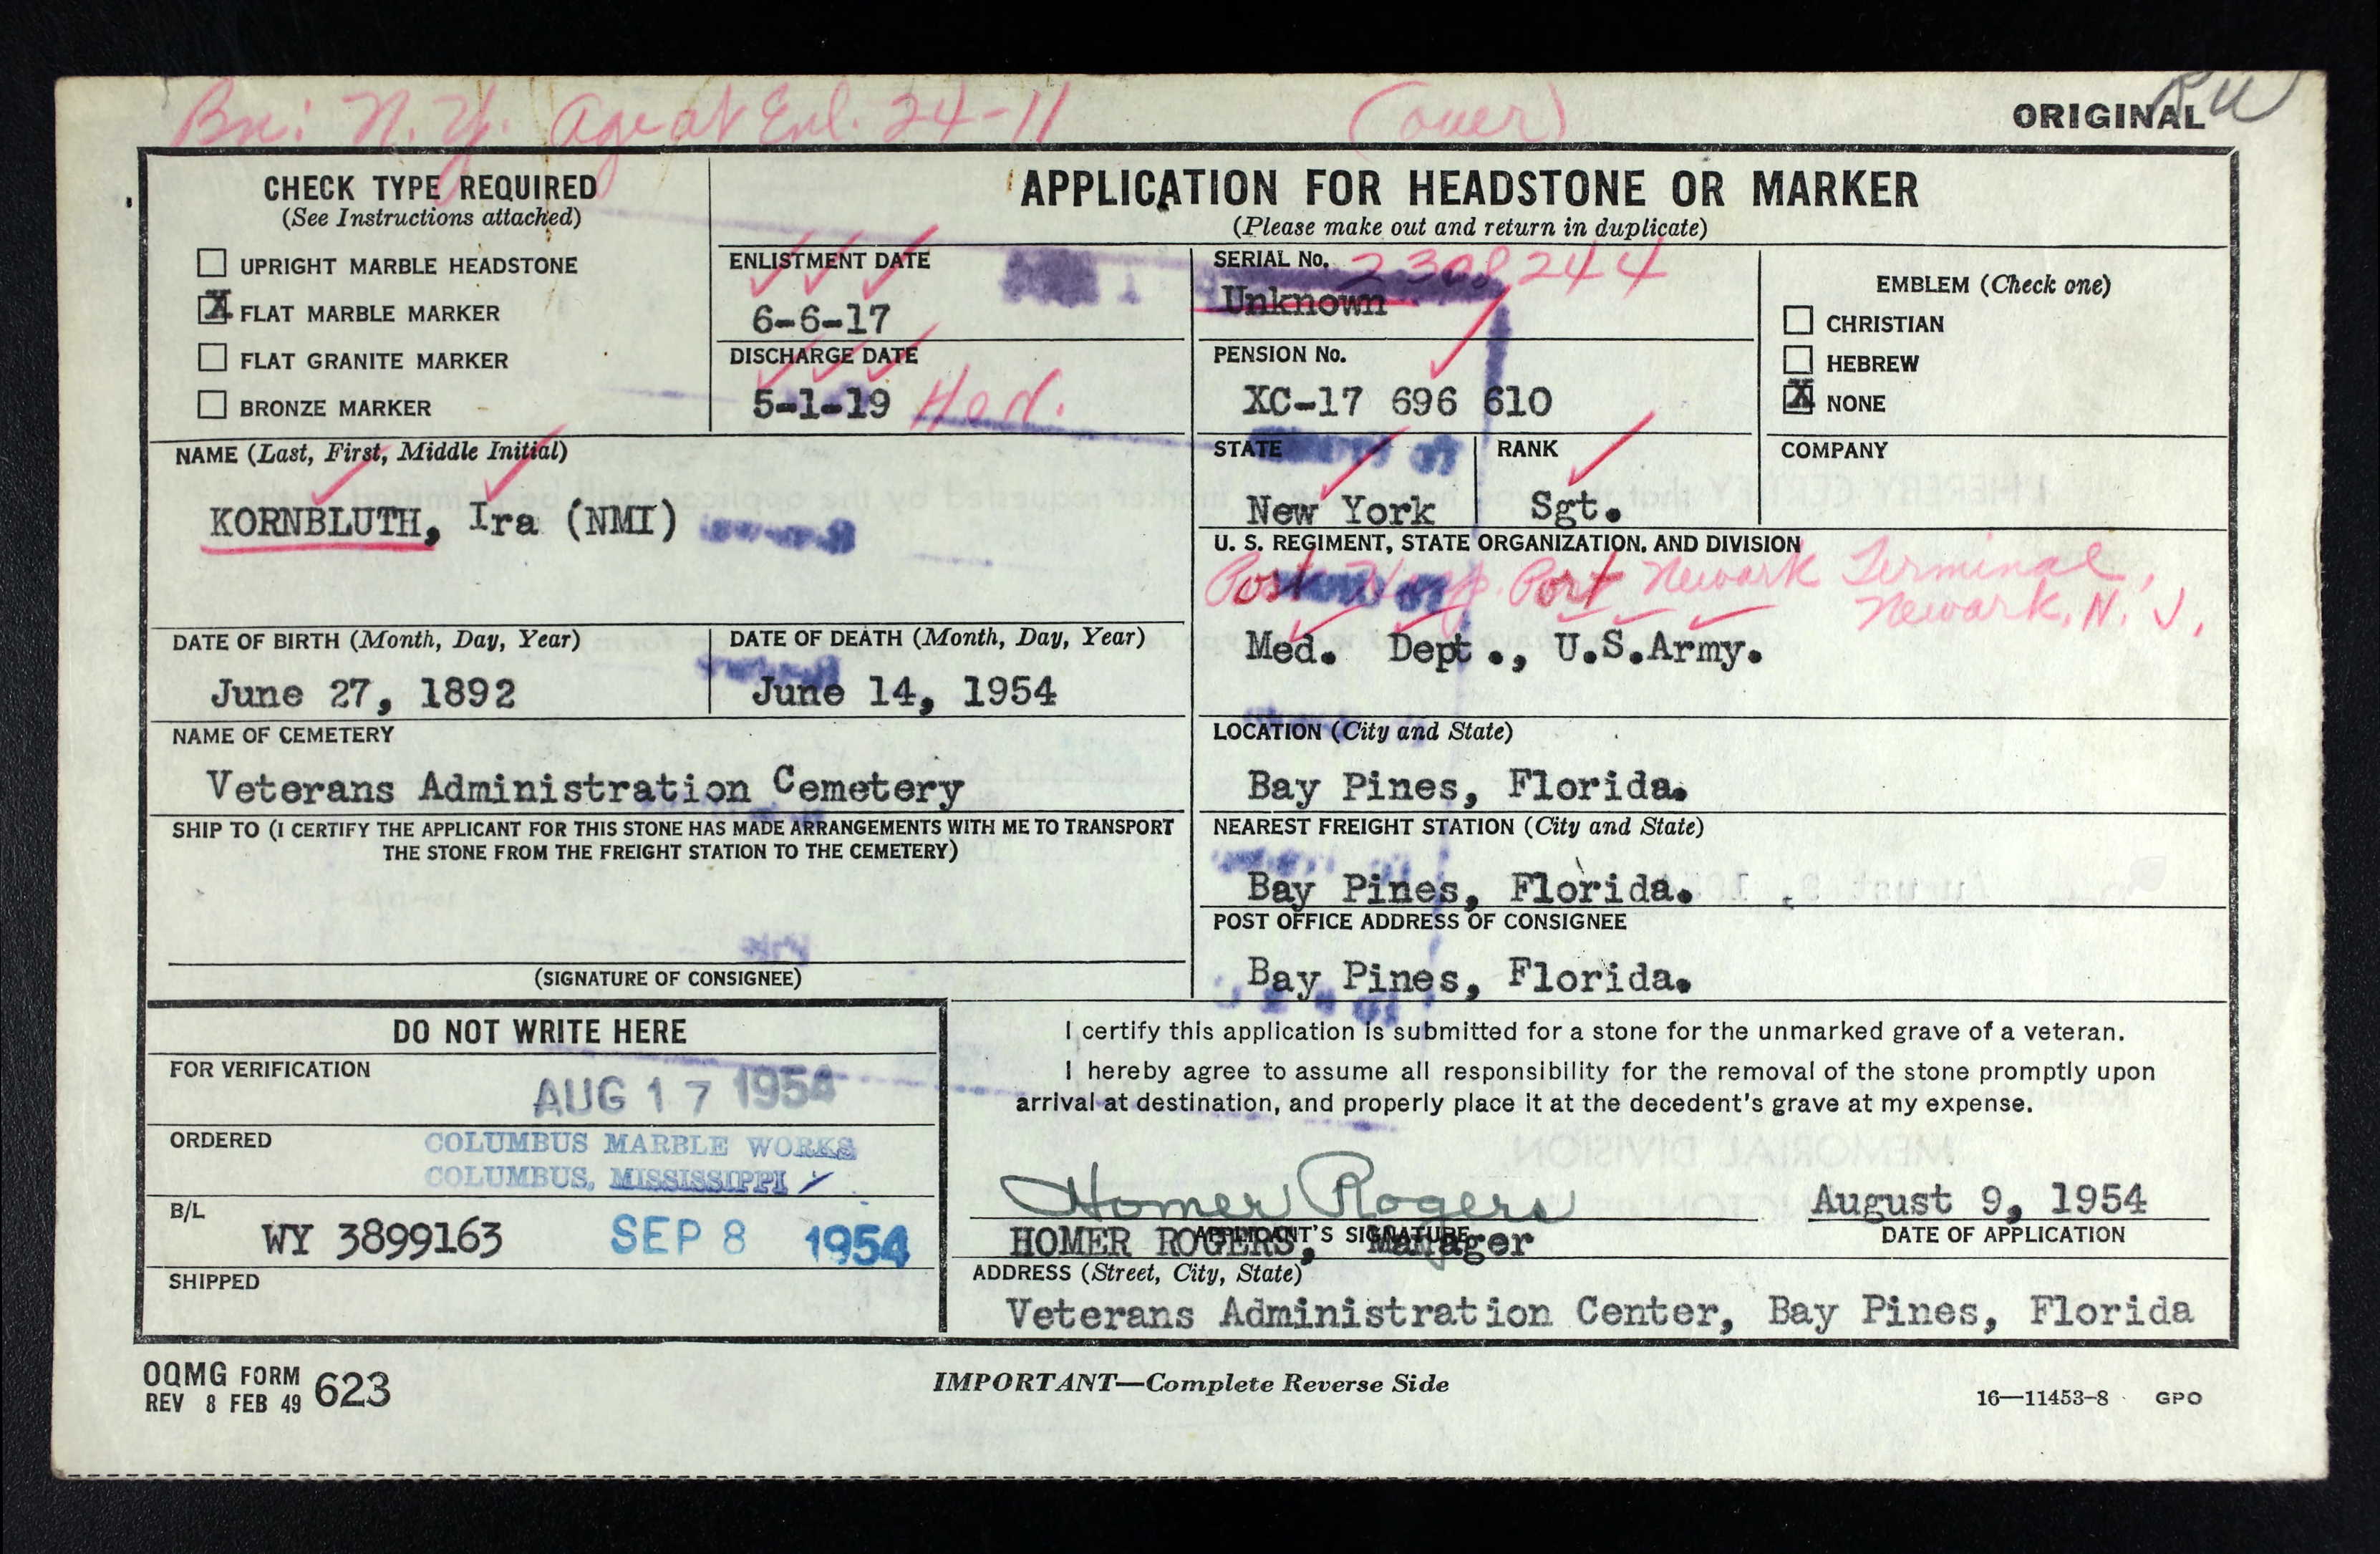 Bn: N.Y. Age at Enl. 24-11 (over)
ORIGINAL
CHECK TYPE REQUIRED
(See Instructions attached)
UPRIGHT MARBLE HEADSTONE
X FLAT MARBLE MARKER
FLAT GRANITE MARKER
BRONZE MARKER
APPLICATION FOR HEADSTONE OR MARKER
(Please make out and return in duplicate)
ENLISTMENT DATE
6-6-17
DISCHARGE DATE
5-1-19 Hon.
SERIAL No. 2308244
Unknown
PENSION No.
XC-17 696 610
EMBLEM (Check one)
CHRISTIAN
HEBREW
X NONE
NAME (Last, First, Middle Initial)
KORNBLUTH, Ira (NMI)
STATE
New York
RANK
Sgt.
COMPANY
U. S. REGIMENT, STATE ORGANIZATION, AND DIVISION
Post Hosp. Port Newark Terminal,
Newark, N. J.
Med. Dept., U.S.Army.
DATE OF BIRTH (Month, Day, Year)
June 27, 1892
DATE OF DEATH (Month, Day, Year)
June 14, 1954
NAME OF CEMETERY
Veterans Administration Cemetery
LOCATION (City and State)
Bay Pines, Florida.
SHIP TO (I CERTIFY THE APPLICANT FOR THIS STONE HAS MADE ARRANGEMENTS WITH ME TO TRANSPORT
THE STONE FROM THE FREIGHT STATION TO THE CEMETERY)
(SIGNATURE OF CONSIGNEE)
NEAREST FREIGHT STATION (City and State)
Bay Pines, Florida.
POST OFFICE ADDRESS OF CONSIGNEE
Bay Pines, Florida.
DO NOT WRITE HERE
FOR VERIFICATION
AUG 17 1954
ORDERED
COLUMBUS MARBLE WORKS
COLUMBUS, MISSISSIPPI
B/L
WY 3899163 SEP 8 1954
SHIPPED
I certify this application is submitted for a stone for the unmarked grave of a veteran.
I hereby agree to assume all responsibility for the removal of the stone promptly upon
arrival at destination, and properly place it at the decedent's grave at my expense.
Homer Rogers
August 9, 1954
APPLICANT'S SIGNATURE
HOMER ROGERS, Manager
DATE OF APPLICATION
ADDRESS (Street, City, State)
Veterans Administration Center, Bay Pines, Florida
OQMG FORM
REV 8 FEB 49 623
IMPORTANT—Complete Reverse Side
16—11453-8 GPO